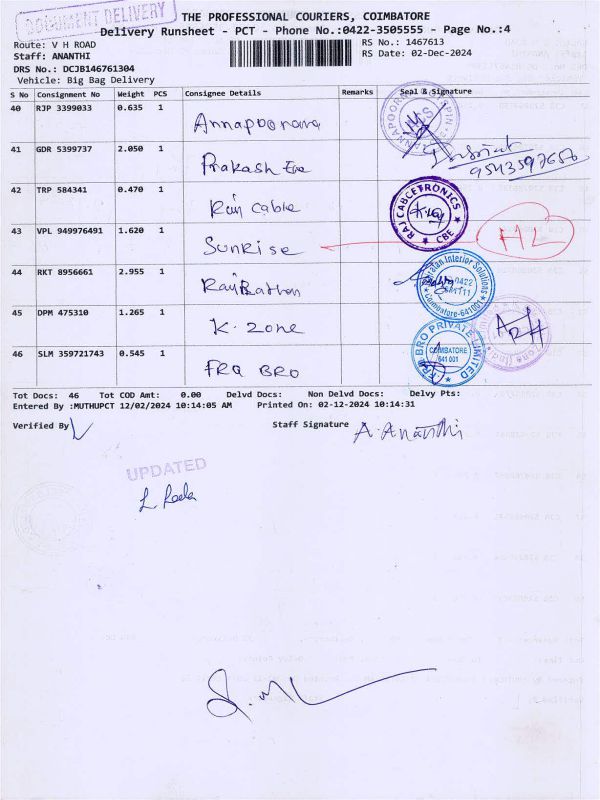 DOCUMENT DELIVERY
THE PROFESSIONAL COURIERS, COIMBATORE
Delivery Runsheet - PCT - Phone No.:0422-3505555 - Page No.:4
Route: V H ROAD
RS No.: 1467613
Staff: ANANTHI
RS Date: 02-Dec-2024
DRS No.: DCJB146761304
Vehicle: Big Bag Delivery
S No Consignment No Weight PCS Consignee Details Remarks Seal & Signature
40 RJP 3399033 0.635 1 Annapoorana
41 GDR 5399737 2.050 1 Prakash
9543597656
42 TRP 584341 0.470 1 Raj Cable
RAJ CABCETRONICS
CBE
43 VPL 949976491 1.620 1 Sunrise
HL
44 RKT 8956661 2.955 1 Raj Rathan
ratan Interior Solutions
Coimbatore-641001
45 DPM 475310 1.265 1 K. Zone
46 SLM 359721743 0.545 1 FRA BRO
BRO PRIVATE LIMITED
COIMBATORE
641 001
Tot Docs: 46 Tot COD Amt: 0.00 Delvd Docs: Non Delvd Docs: Delvy Pts:
Entered By :MUTHUPCT 12/02/2024 10:14:05 AM Printed On: 02-12-2024 10:14:31
Verified By
Staff Signature A. Ananthi
UPDATED